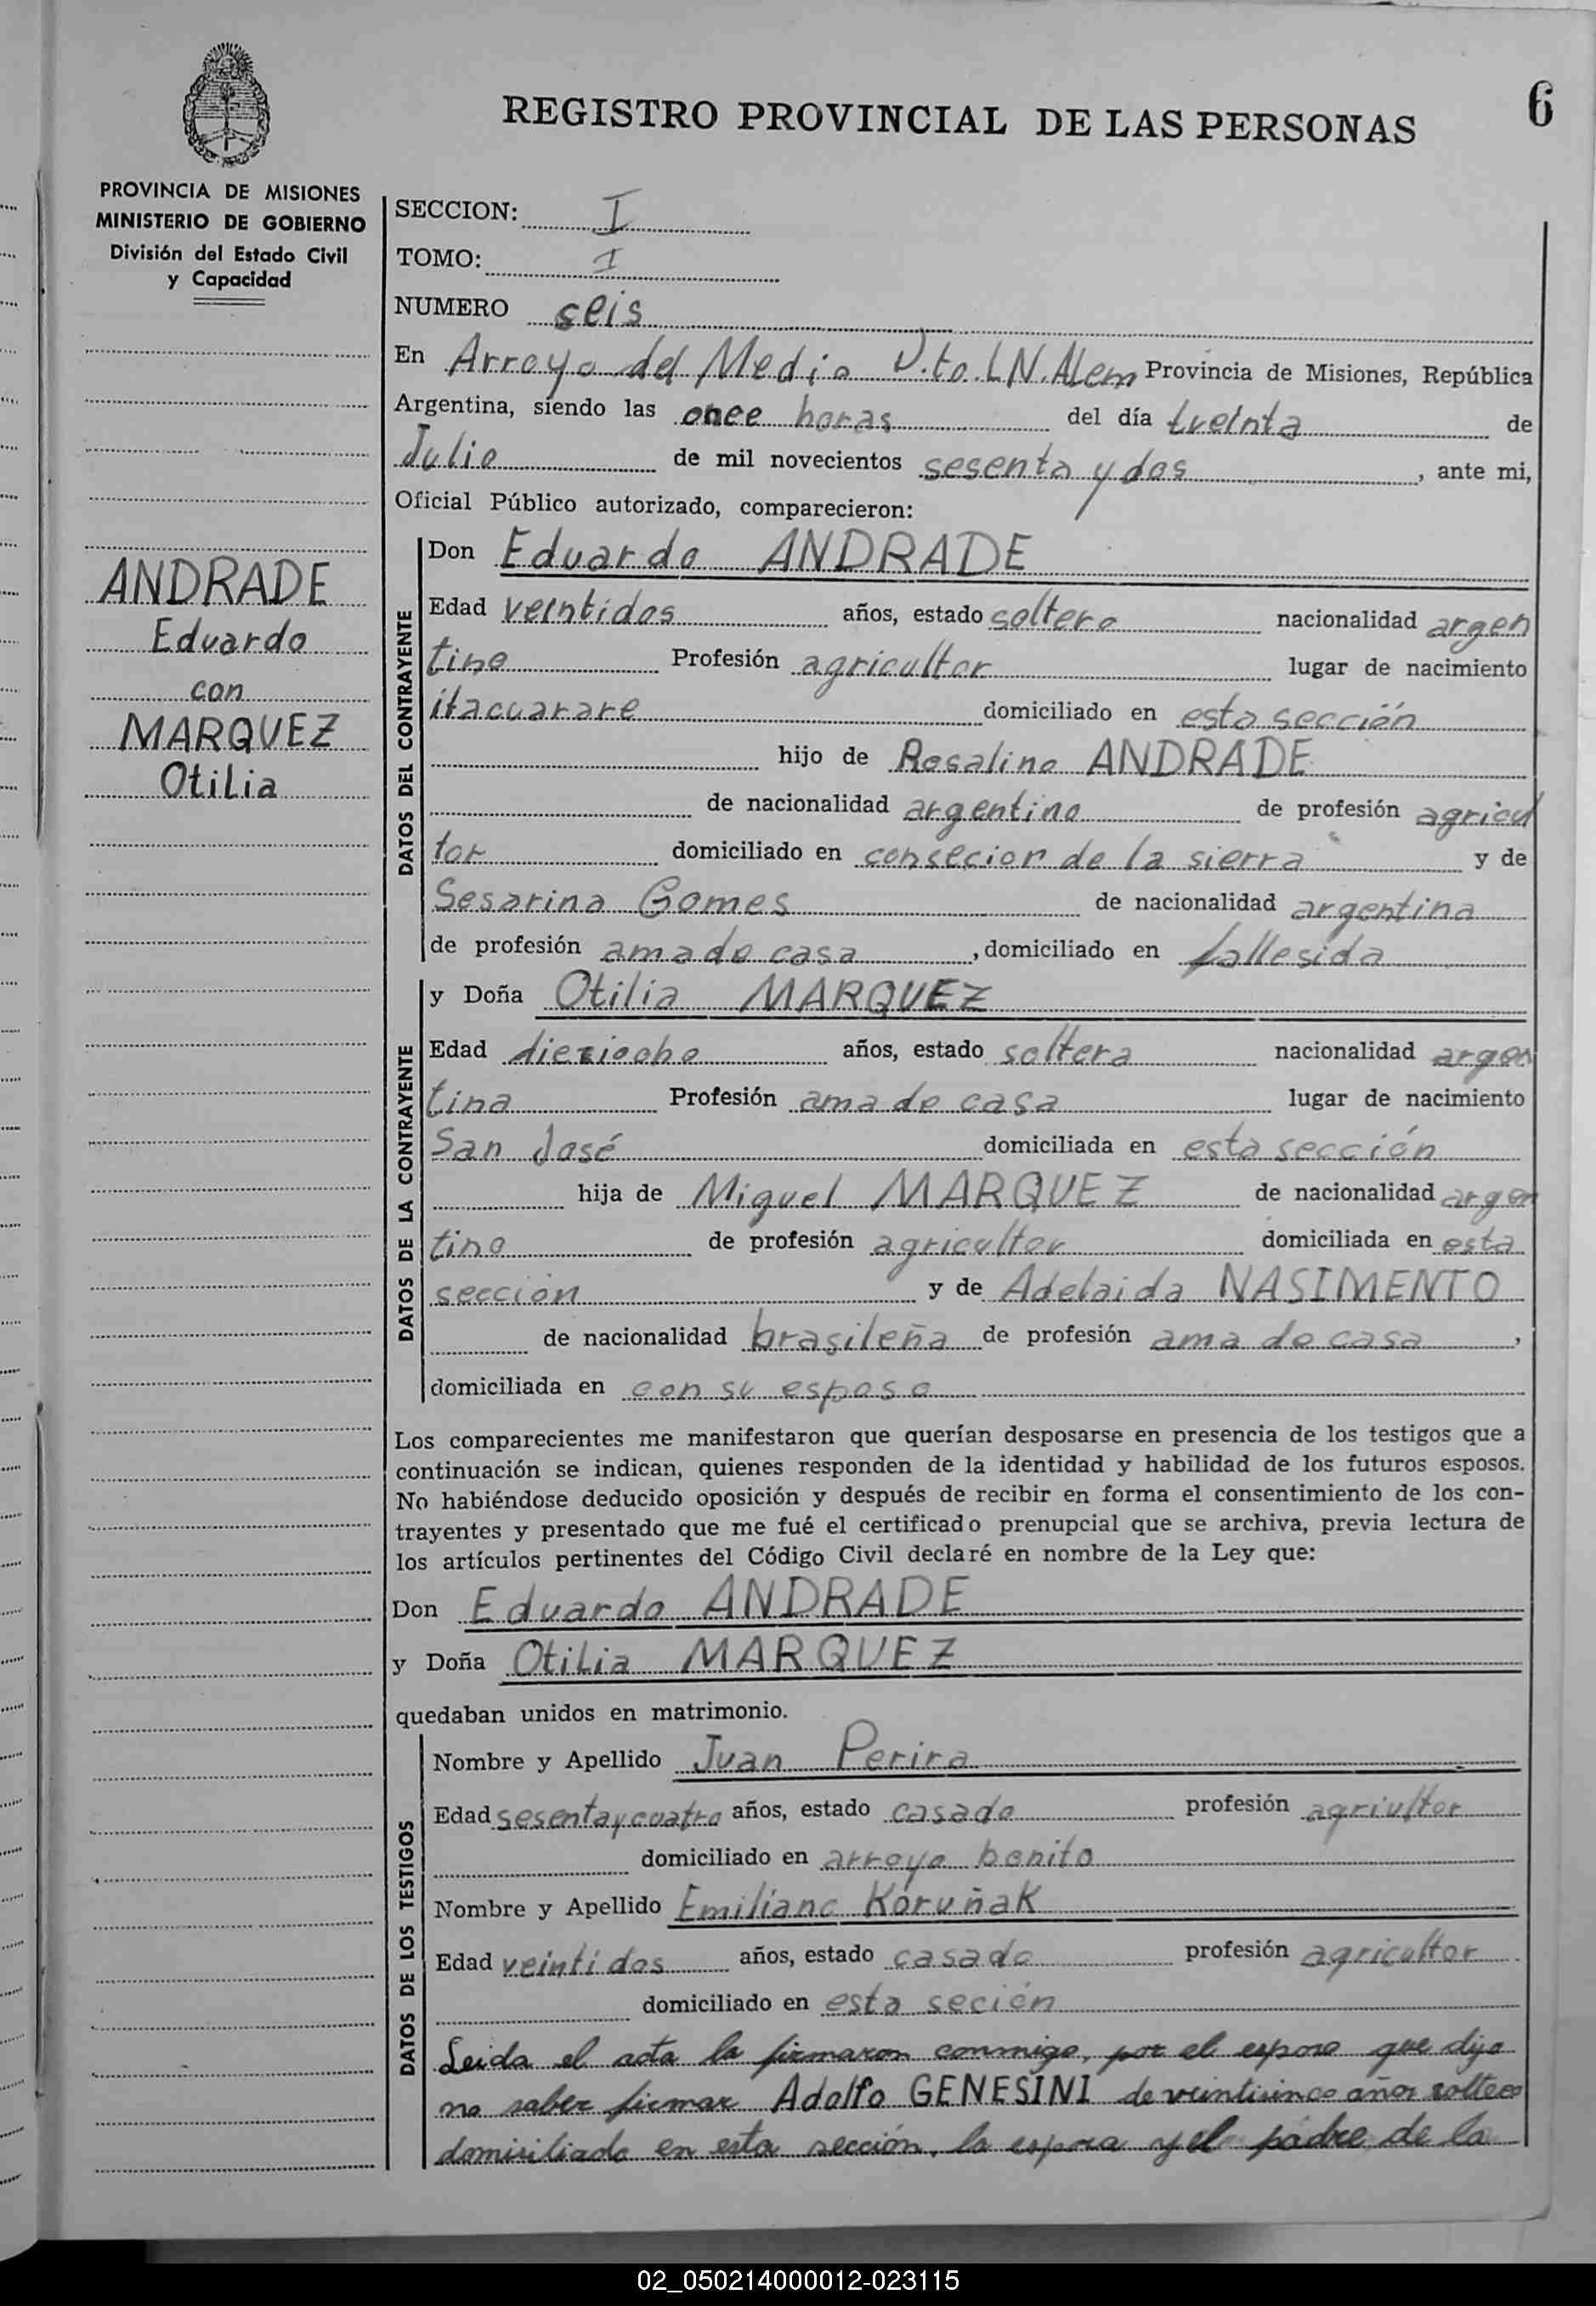 REGISTRO PROVINCIAL DE LAS PERSONAS
6
PROVINCIA DE MISIONES
MINISTERIO DE GOBIERNO
División del Estado Civil
y Capacidad
ANDRADE
Eduardo
con
MARQUEZ
Otilia
SECCION: I
TOMO: I
NUMERO seis
En Arroyo del Medio D.to. L.N. Alem Provincia de Misiones, República
Argentina, siendo las once horas del día treinta de
Julio de mil novecientos sesenta y dos, ante mi,
Oficial Público autorizado, comparecieron:
DATOS DEL CONTRAYENTE
Don Eduardo ANDRADE
Edad veintidos años, estado soltero nacionalidad argen
tino Profesión agricultor lugar de nacimiento
itacuarare domiciliado en esta sección
hijo de Rosalino ANDRADE
de nacionalidad argentino de profesión agricul
tor domiciliado en consecion de la sierra y de
Sesarina Gomes de nacionalidad argentina
de profesión ama de casa, domiciliado en fallesida
DATOS DE LA CONTRAYENTE
y Doña Otilia MARQUEZ
Edad dieziocho años, estado soltera nacionalidad argen
tina Profesión ama de casa lugar de nacimiento
San José domiciliada en esta sección
hija de Miguel MARQUEZ de nacionalidad argen
tino de profesión agricultor domiciliada en esta
sección y de Adelaida NASIMENTO
de nacionalidad brasileña de profesión ama de casa,
domiciliada en con su esposo
Los comparecientes me manifestaron que querían desposarse en presencia de los testigos que a
continuación se indican, quienes responden de la identidad y habilidad de los futuros esposos.
No habiéndose deducido oposición y después de recibir en forma el consentimiento de los con-
trayentes y presentado que me fué el certificado prenupcial que se archiva, previa lectura de
los artículos pertinentes del Código Civil declaré en nombre de la Ley que:
Don Eduardo ANDRADE
y Doña Otilia MARQUEZ
quedaban unidos en matrimonio.
DATOS DE LOS TESTIGOS
Nombre y Apellido Juan Perira
Edad sesenta y cuatro años, estado casado profesión agriultor
domiciliado en arroyo bonito
Nombre y Apellido Emiliano Koruñak
Edad veintidos años, estado casado profesión agricultor
domiciliado en esta seción
Leida el acta la firmaron conmigo, por el esposo que dijo
no saber firmar Adolfo GENESINI de veintisinco años soltero
domisiliado en esta sección, la esposa y el padre de la
02_050214000012-023115